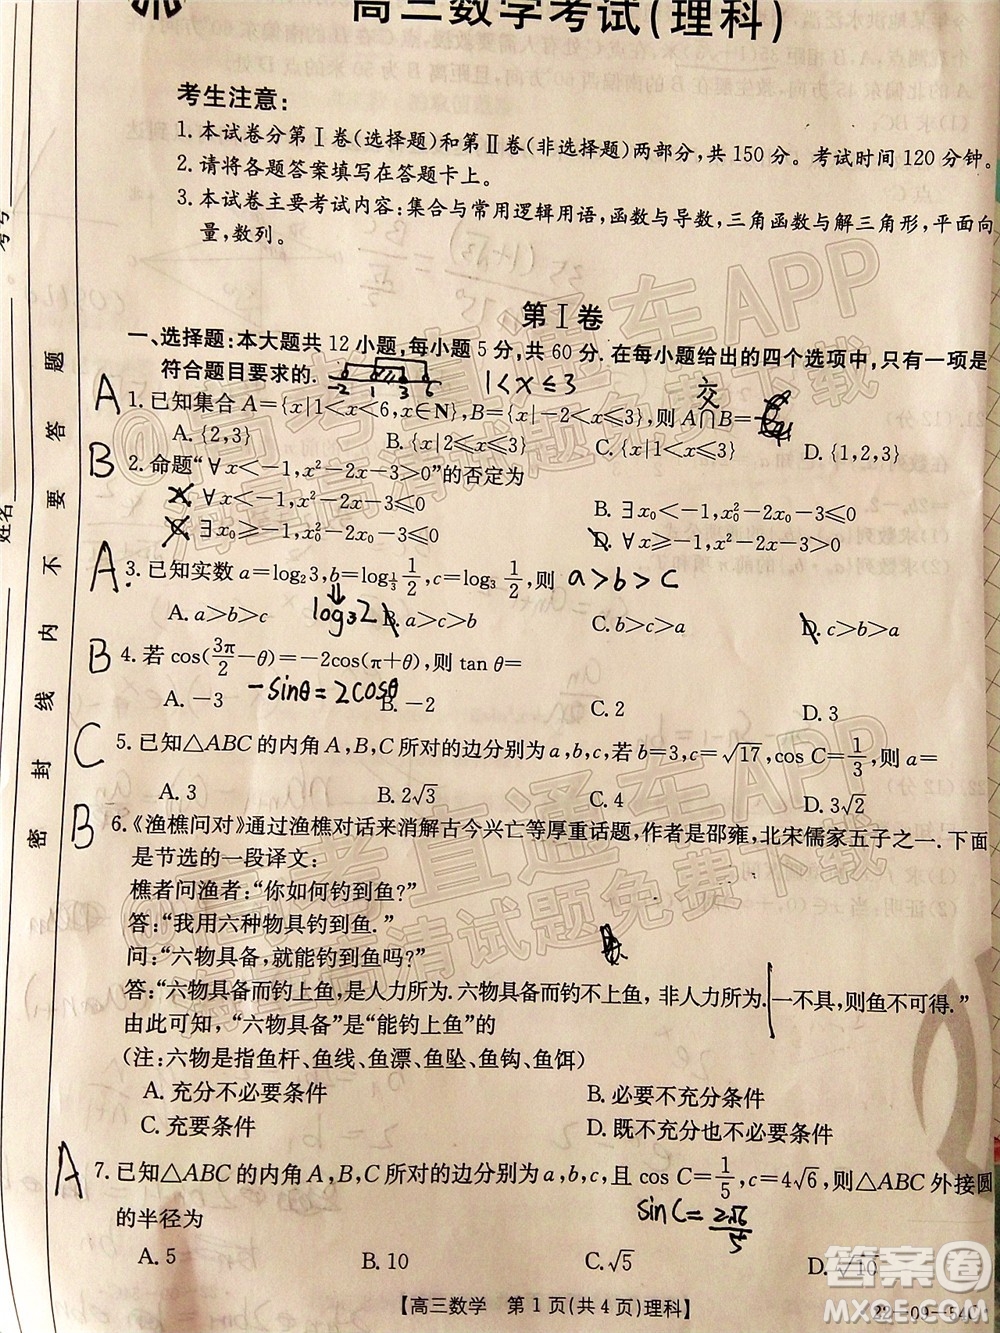 高三数学考试(理科)
考生注意:
1. 本试卷分第Ⅰ卷(选择题)和第Ⅱ卷(非选择题)两部分,共 150 分。考试时间 120 分钟。
2. 请将各题答案填写在答题卡上。
3. 本试卷主要考试内容:集合与常用逻辑用语,函数与导数,三角函数与解三角形,平面向
量,数列。
第Ⅰ卷
一、选择题:本大题共 12 小题,每小题 5 分,共 60 分. 在每小题给出的四个选项中,只有一项是
符合题目要求的.
-2 1 3 6
1<x≤3
交
A
1. 已知集合 A={x|1<x<6,x∈N},B={x|-2<x≤3},则 A∩B=
A. {2,3} B. {x|2≤x≤3} C. {x|1<x≤3} D. {1,2,3}
B
2. 命题“∀x<-1,x²-2x-3>0”的否定为
A. ∀x<-1,x²-2x-3≤0 B. ∃x₀<-1,x₀²-2x₀-3≤0
C. ∃x₀≥-1,x₀²-2x₀-3≤0 D. ∀x≥-1,x²-2x-3≤0
A
3. 已知实数 a=log₂3,b=log_{1/3} 1/2,c=log₃ 1/2,则
a>b>c
log₃2
A. a>b>c B. a>c>b C. b>c>a D. c>b>a
B
4. 若 cos(3π/2-θ)=-2cos(π+θ),则 tan θ=
-sinθ=2cosθ
A. -3 B. -2 C. 2 D. 3
C
5. 已知△ABC 的内角 A,B,C 所对的边分别为 a,b,c,若 b=3,c=√17,cos C=1/3,则 a=
A. 3 B. 2√3 C. 4 D. 3√2
B
6.《渔樵问对》通过渔樵对话来消解古今兴亡等厚重话题,作者是邵雍,北宋儒家五子之一. 下面
是节选的一段译文:
樵者问渔者:“你如何钓到鱼?”
答:“我用六种物具钓到鱼.”
问:“六物具备,就能钓到鱼吗?”
答:“六物具备而钓上鱼,是人力所为. 六物具备而钓不上鱼,非人力所为. 一不具,则鱼不可得.”
由此可知,“六物具备”是“能钓上鱼”的
(注:六物是指鱼杆、鱼线、鱼漂、鱼坠、鱼钩、鱼饵)
A. 充分不必要条件 B. 必要不充分条件
C. 充要条件 D. 既不充分也不必要条件
A
7. 已知△ABC 的内角 A,B,C 所对的边分别为 a,b,c,且 cos C=1/5,c=4√6,则△ABC 外接圆
的半径为
sin C=2√6/5
A. 5 B. 10 C. √5 D. √10
【高三数学 第 1 页(共 4 页)理科】
22-09-54C
密 封 线 内 不 要 答 题
姓名
考号
@高考直通车APP
海量高清试题免费下载
@高考直通车APP
海量高清试题免费下载
答案圈
MXQE.COM